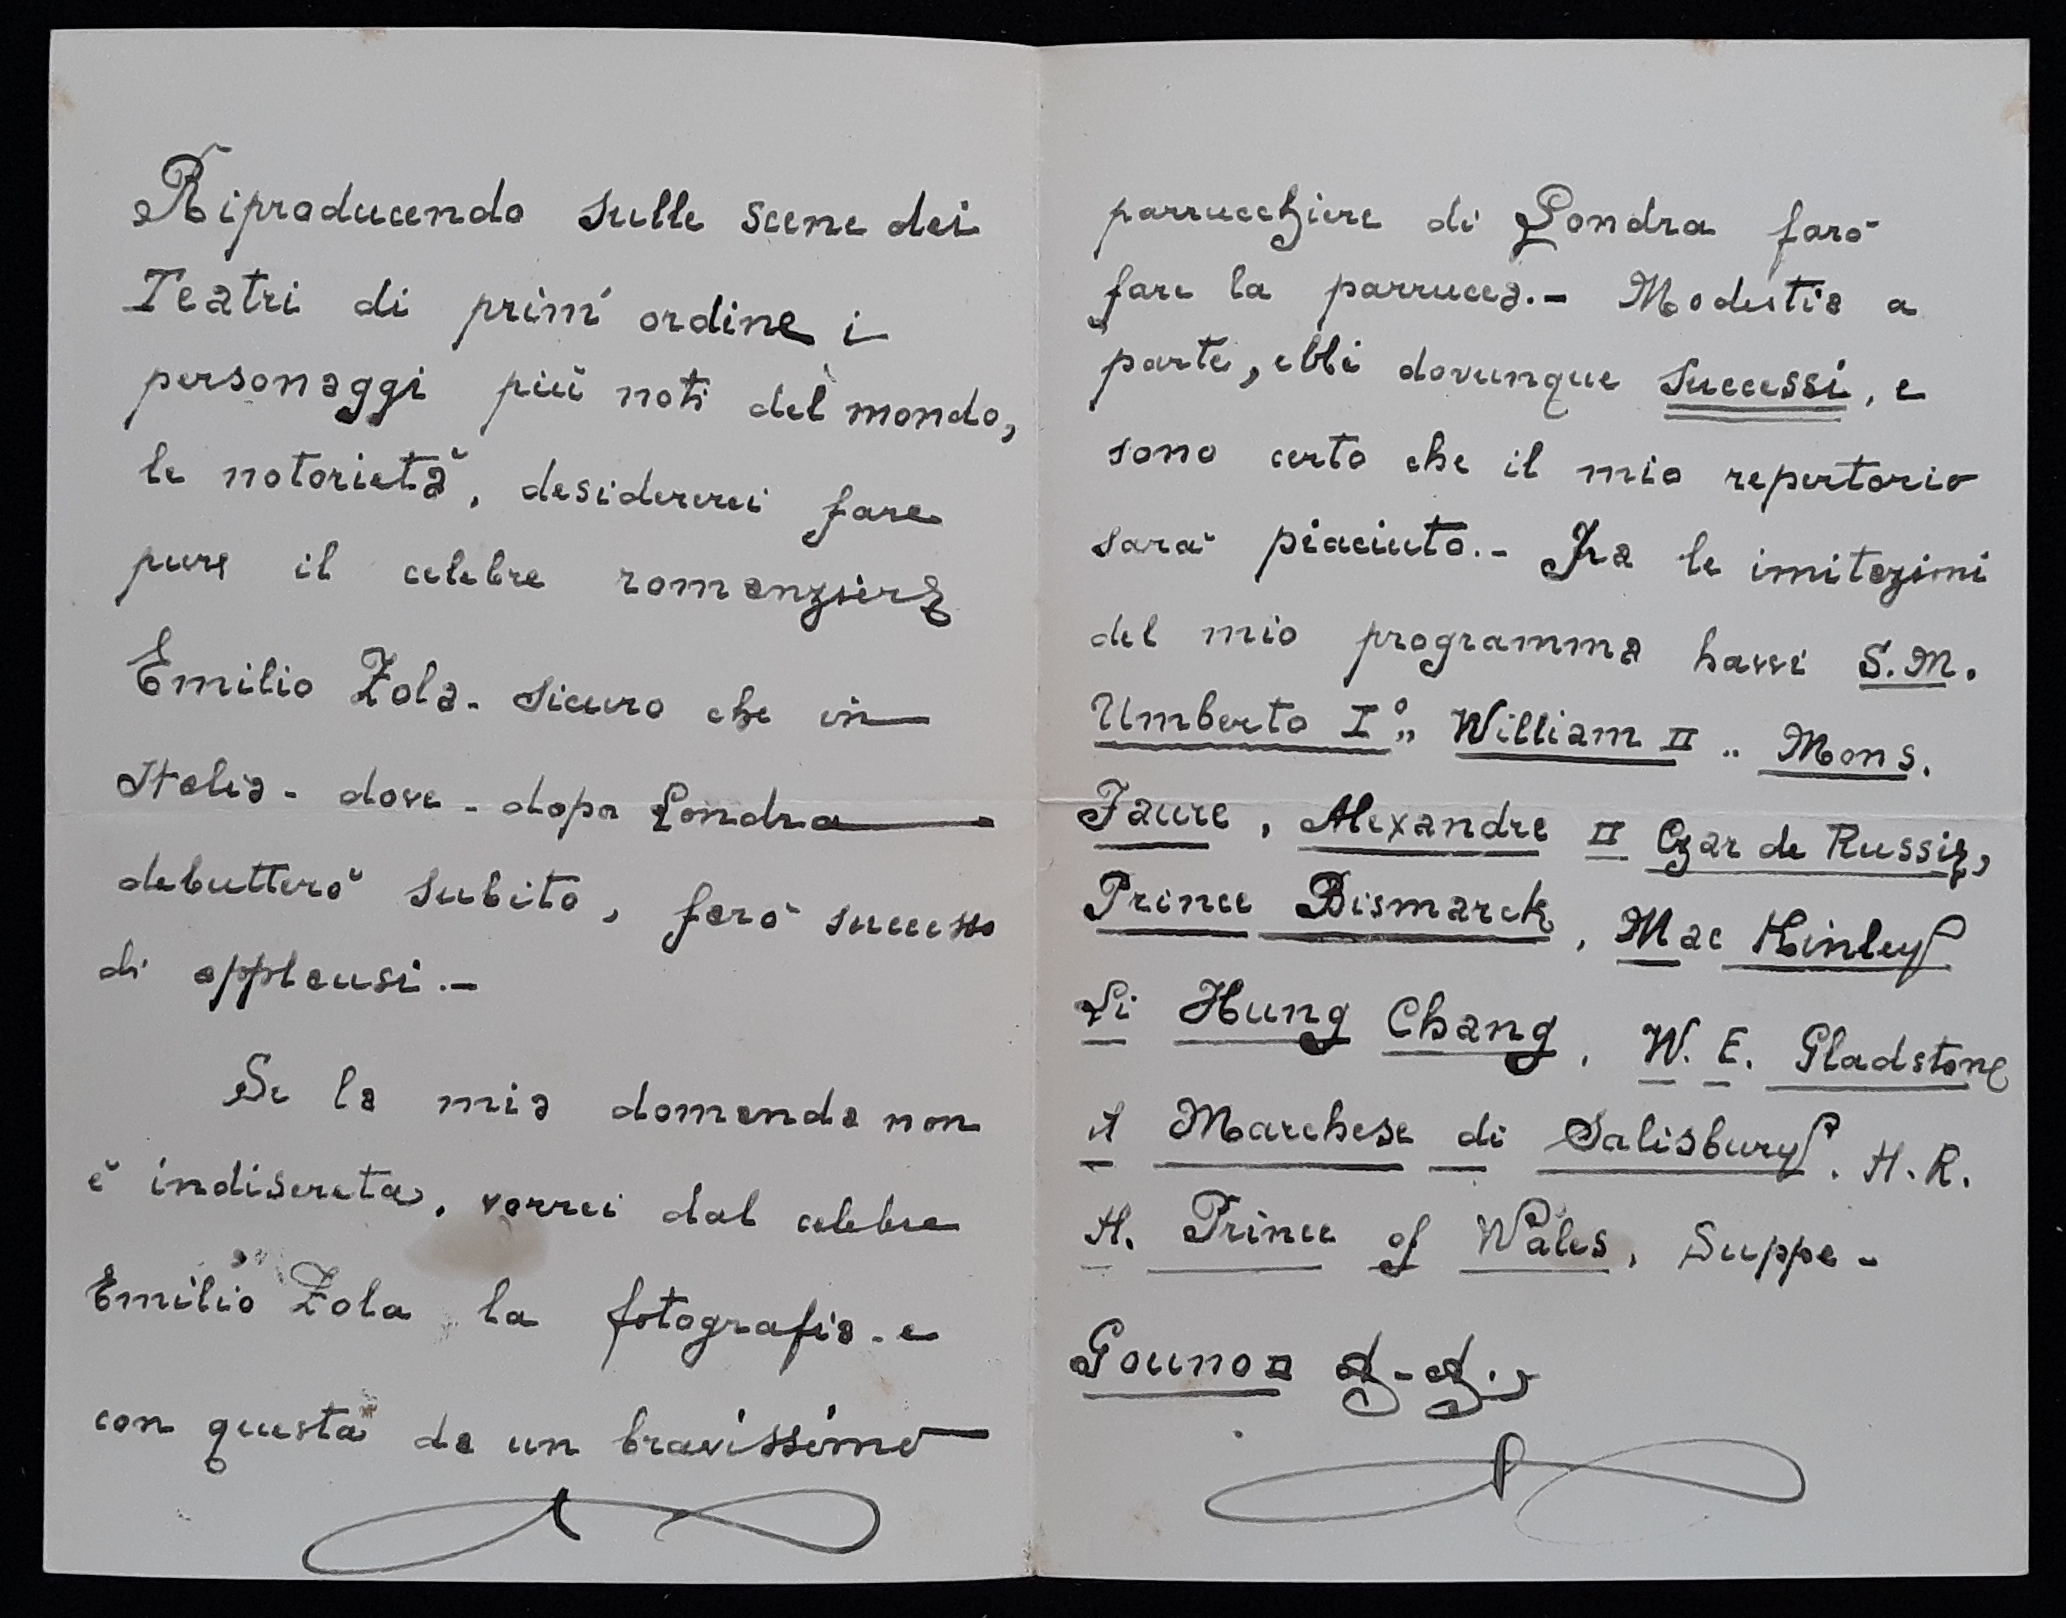 Riproducendo sulle scene dei
Teatri di prim' ordine i
personaggi più noti del mondo,
le notorietà, desidererei fare
pure il celebre romanziere
Emilio Zola - sicuro che in
Italia - dove - dopo Londra
debutterò subito, farò successo
di applausi.-
Se la mia domanda non
è indiscreta, vorrei dal celebre
Emilio Zola la fotografia - e
con questa da un bravissimo
parrucchiere di Londra farò
fare la parrucca.- Modestia a
parte, ebbi dovunque successi, e
sono certo che il mio repertorio
sarà piaciuto.- Fra le imitazioni
del mio programma havvi S. M.
Umberto Iº„ William II „ Mons.
Faure, Alexandre II Czar de Russie,
Prince Bismarck, Mac Kinley
Li Hung Chang, W. E. Gladstone
il Marchese di Salisbury. H. R.
H. Prince of Wales, Suppe -
Gounod